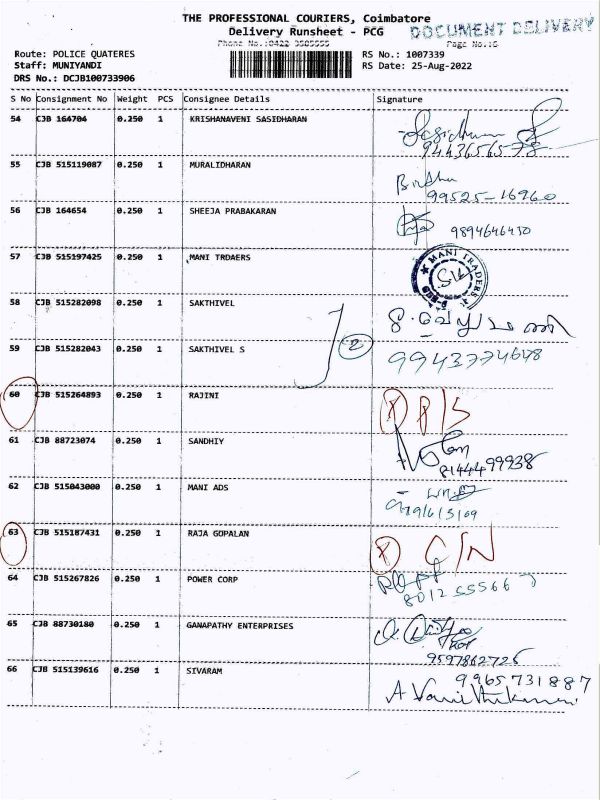 THE PROFESSIONAL COURIERS, Coimbatore
Delivery Runsheet - PCG
DOCUMENT DELIVERY
Phone No.:0422 3585555
Page No.:6
Route: POLICE QUATERES
RS No.: 1007339
Staff: MUNIYANDI
RS Date: 25-Aug-2022
DRS No.: DCJB100733906
S No Consignment No Weight PCS Consignee Details Signature
54 CJB 164704 0.250 1 KRISHANAVENI SASIDHARAN
9443656578
55 CJB 515119087 0.250 1 MURALIDHARAN
99525-16960
56 CJB 164654 0.250 1 SHEEJA PRABAKARAN 9894646430
57 CJB 515197425 0.250 1 MANI TRDAERS MANI TRADERS
58 CJB 515282098 0.250 1 SAKTHIVEL
59 CJB 515282043 0.250 1 SAKTHIVEL S 2 9943774678
60 CJB 515264893 0.250 1 RAJINI P/S
61 CJB 88723074 0.250 1 SANDHIY
8144499938
62 CJB 515043000 0.250 1 MANI ADS
63 CJB 515187431 0.250 1 RAJA GOPALAN C/N
64 CJB 515267826 0.250 1 POWER CORP
8012555667
65 CJB 88730180 0.250 1 GANAPATHY ENTERPRISES
9597862726
66 CJB 515139616 0.250 1 SIVARAM 9965731887